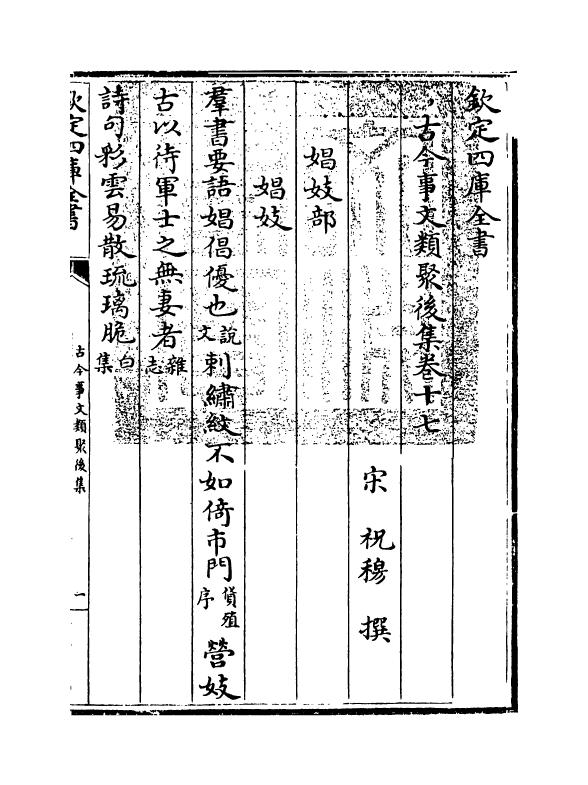 欽定四庫全書
古今事文類聚後集卷十七
宋 祝穆 撰
娼妓部
娼妓
羣書要語娼倡優也說文刺繡紋不如倚市門貨殖序營妓
古以待軍士之無妻者雜志
詩句彩雲易散琉璃脆白集
欽定四庫全書
古今事文類聚後集
一